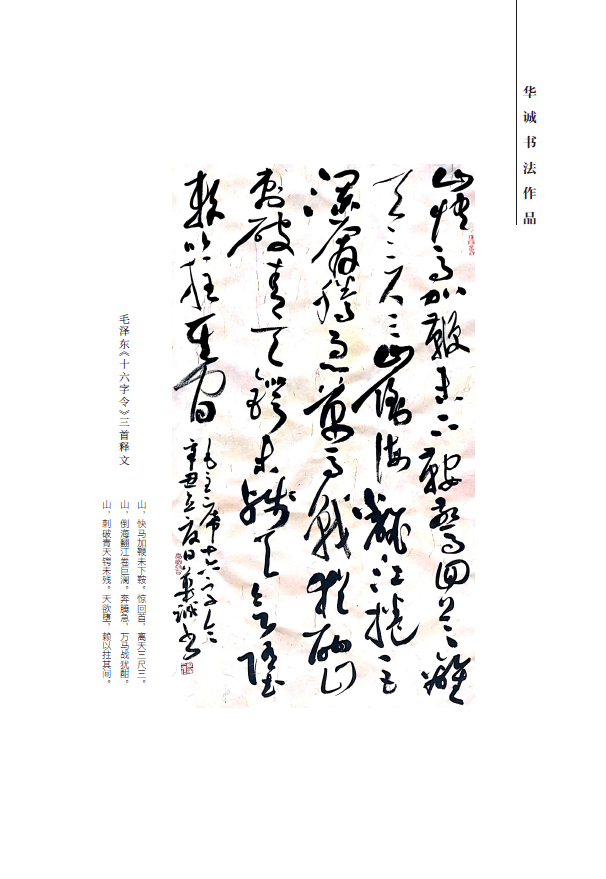 华诚书法作品
山快马加鞭未下鞍惊回首离
天三尺三山倒海翻江卷巨
澜奔腾急万马战犹酣山
刺破青天锷未残天欲堕
赖以拄其间
毛主席十六字令
辛丑立夏日华诚书
毛泽东《十六字令》三首释文
山，快马加鞭未下鞍。惊回首，离天三尺三。
山，倒海翻江卷巨澜。奔腾急，万马战犹酣。
山，刺破青天锷未残。天欲堕，赖以拄其间。